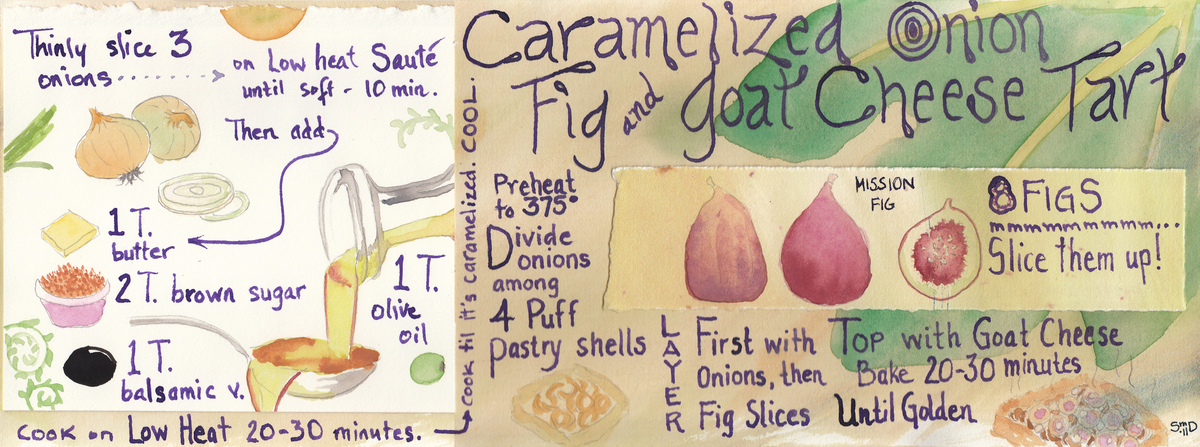 Caramelized Onion
Fig and Goat Cheese Tart
Thinly slice 3
onions
on Low heat Sauté
until soft - 10 min.
Then add
1 T.
butter
2 T. brown sugar
1 T.
olive
oil
1 T.
balsamic v.
COOK on Low Heat 20-30 minutes.
COOK til it's caramelized. COOL.
Preheat
to 375°
Divide
onions
among
4 Puff
pastry shells
MISSION
FIG
8 FIGS
mmmmmmmmmm...
Slice them up!
LAYER
First with
Onions, then
Fig Slices
Top with Goat Cheese
Bake 20-30 minutes
Until Golden